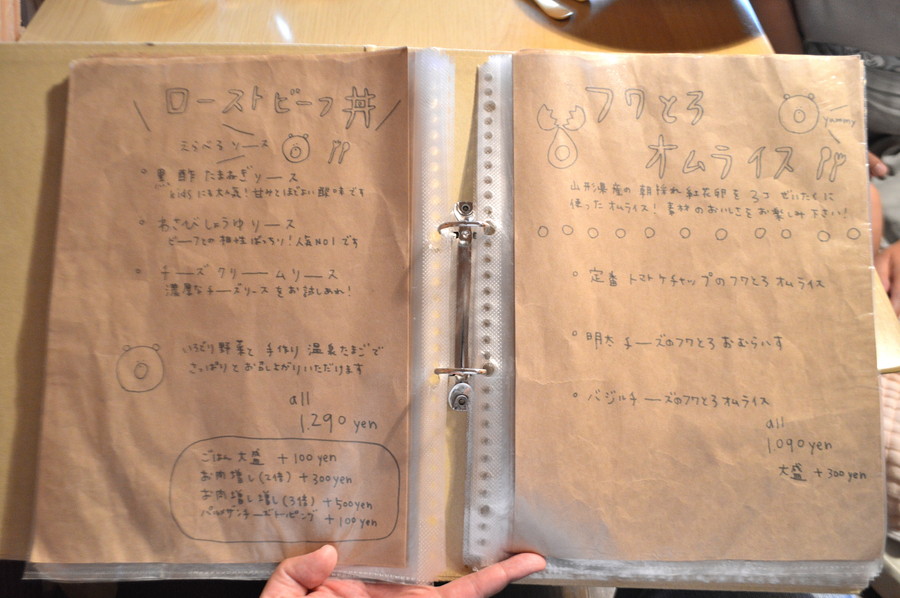 ローストビーフ丼
えらべるソース
黒酢たまねぎソース
kidsにも大人気！甘サとほどよい酸味です
わさびしょうゆソース
ビーフとの相性ばっちり！人気NO1です
チーズクリームソース
濃厚なチーズソースをお試しあれ！
いろどり野菜と手作り温泉たまごで
さっぱりとお召し上がりいただけます
all
1.290 yen
ごはん大盛 +100yen
お肉増し(2倍) +300yen
お肉増し増し(3倍) +500yen
パルメザンチーズトッピング +100yen
フワとろ
yummy
オムライス
山形県産の朝採れ紅花卵を3コぜいたくに
使ったオムライス！素材のおいしさをお楽しみ下さい！
定番トマトケチャップのフワとろオムライス
明太チーズのフワとろおむらいす
バジルチーズのフワとろオムライス
all
1.090 yen
大盛 +300yen